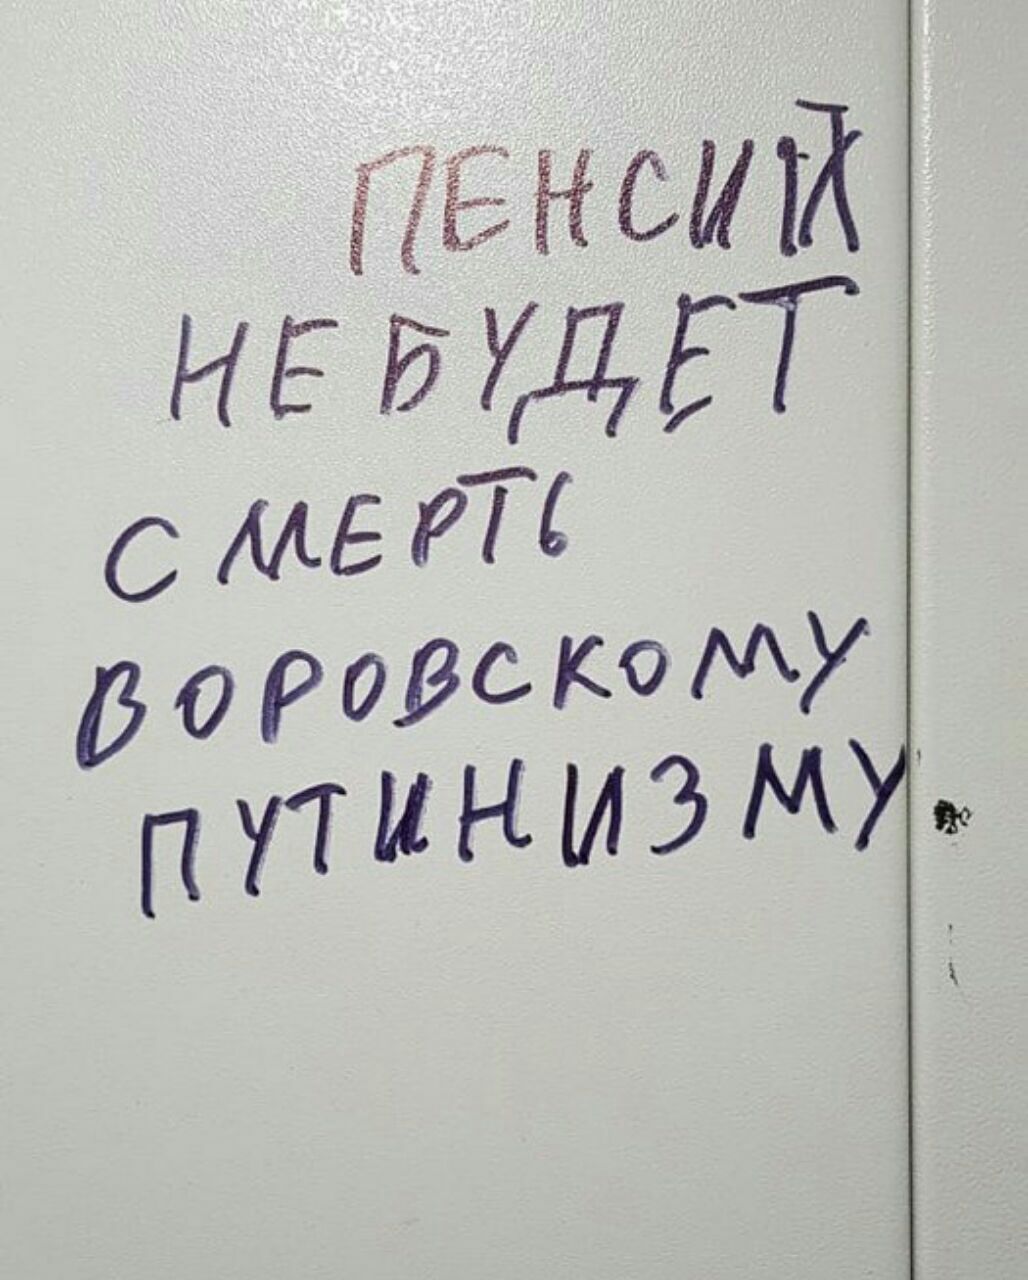 ПЕНСИЙ
НЕ БУДЕТ
СМЕРТЬ
ВОРОВСКОМУ
ПУТИНИЗМУ